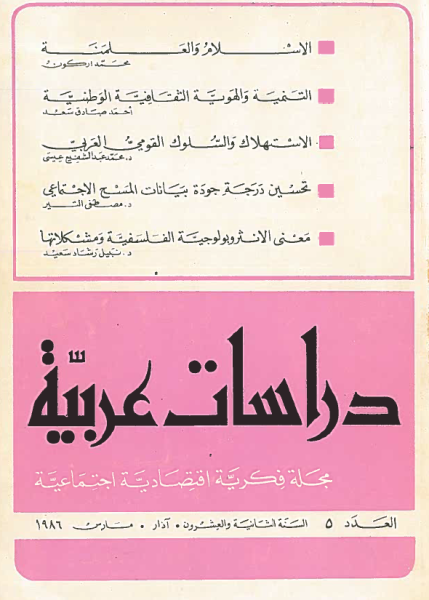 الاسلام والعلمنة
محمد اركون
التنمية والهوية الثقافية الوطنية
احمد صادق سعد
الاستهلاك والسلوك القومي العربي
د. محمد عبد الشفيع عيسى
تحسين درجة جودة بيانات المسح الاجتماعي
د. مصطفى التير
معنى الانثروبولوجية الفلسفية ومشكلاتها
د. نبيل رشاد سعيد
دراسات عربيّة
مجلة فكريّة اقتصاديّة اجتماعيّة
العدد ٥ السنة الثانية والعشرون • آذار • مارس ١٩٨٦